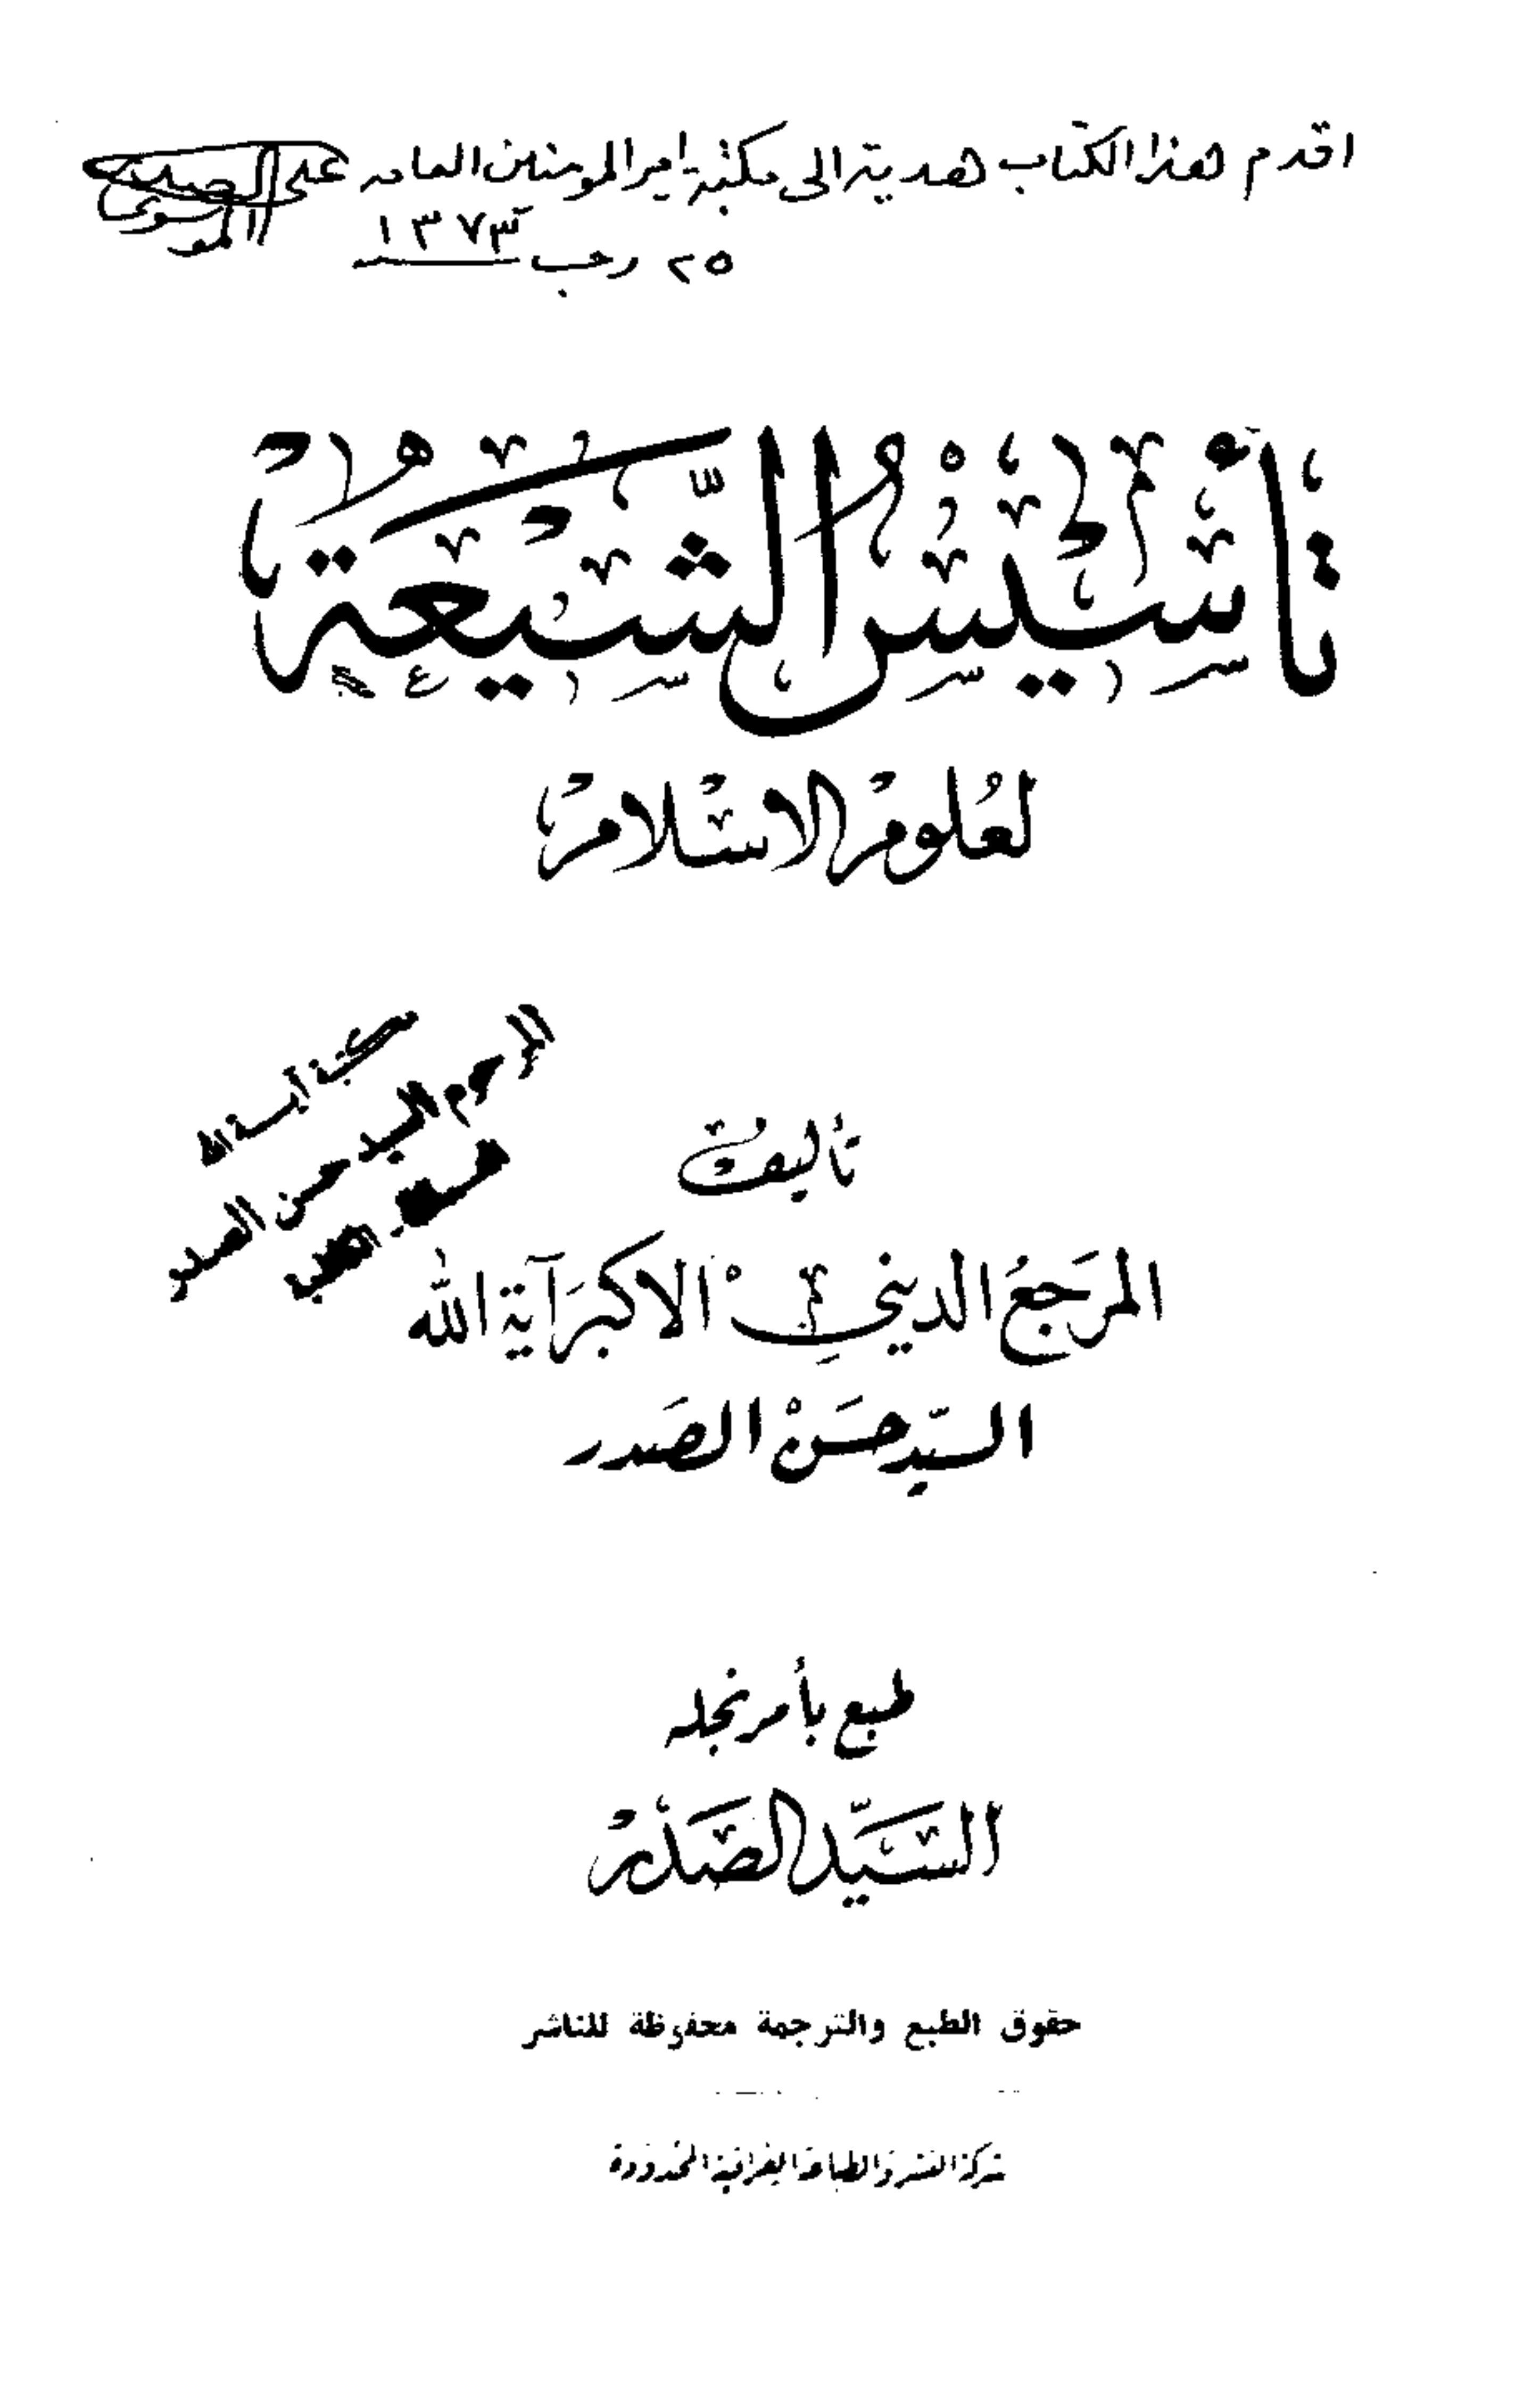 اقدم هذا الكتاب هدية الى مكتبة امير المومنين العامه علي الصدر
الموسوي
٢٥ رجب سنة ١٣٧٣
تأسيس الشيعة
لعلوم الاسلام
مكتبة
المرحوم السيد حسن الصدر
تأليف
المرجع الديني الاكبر آية الله
السيد حسن الصدر
طبع بأمر نجله
السيد الصدر
حقوق الطبع والترجمة محفوظة للناشر
شركة النشر والطباعة العراقية المحدودة